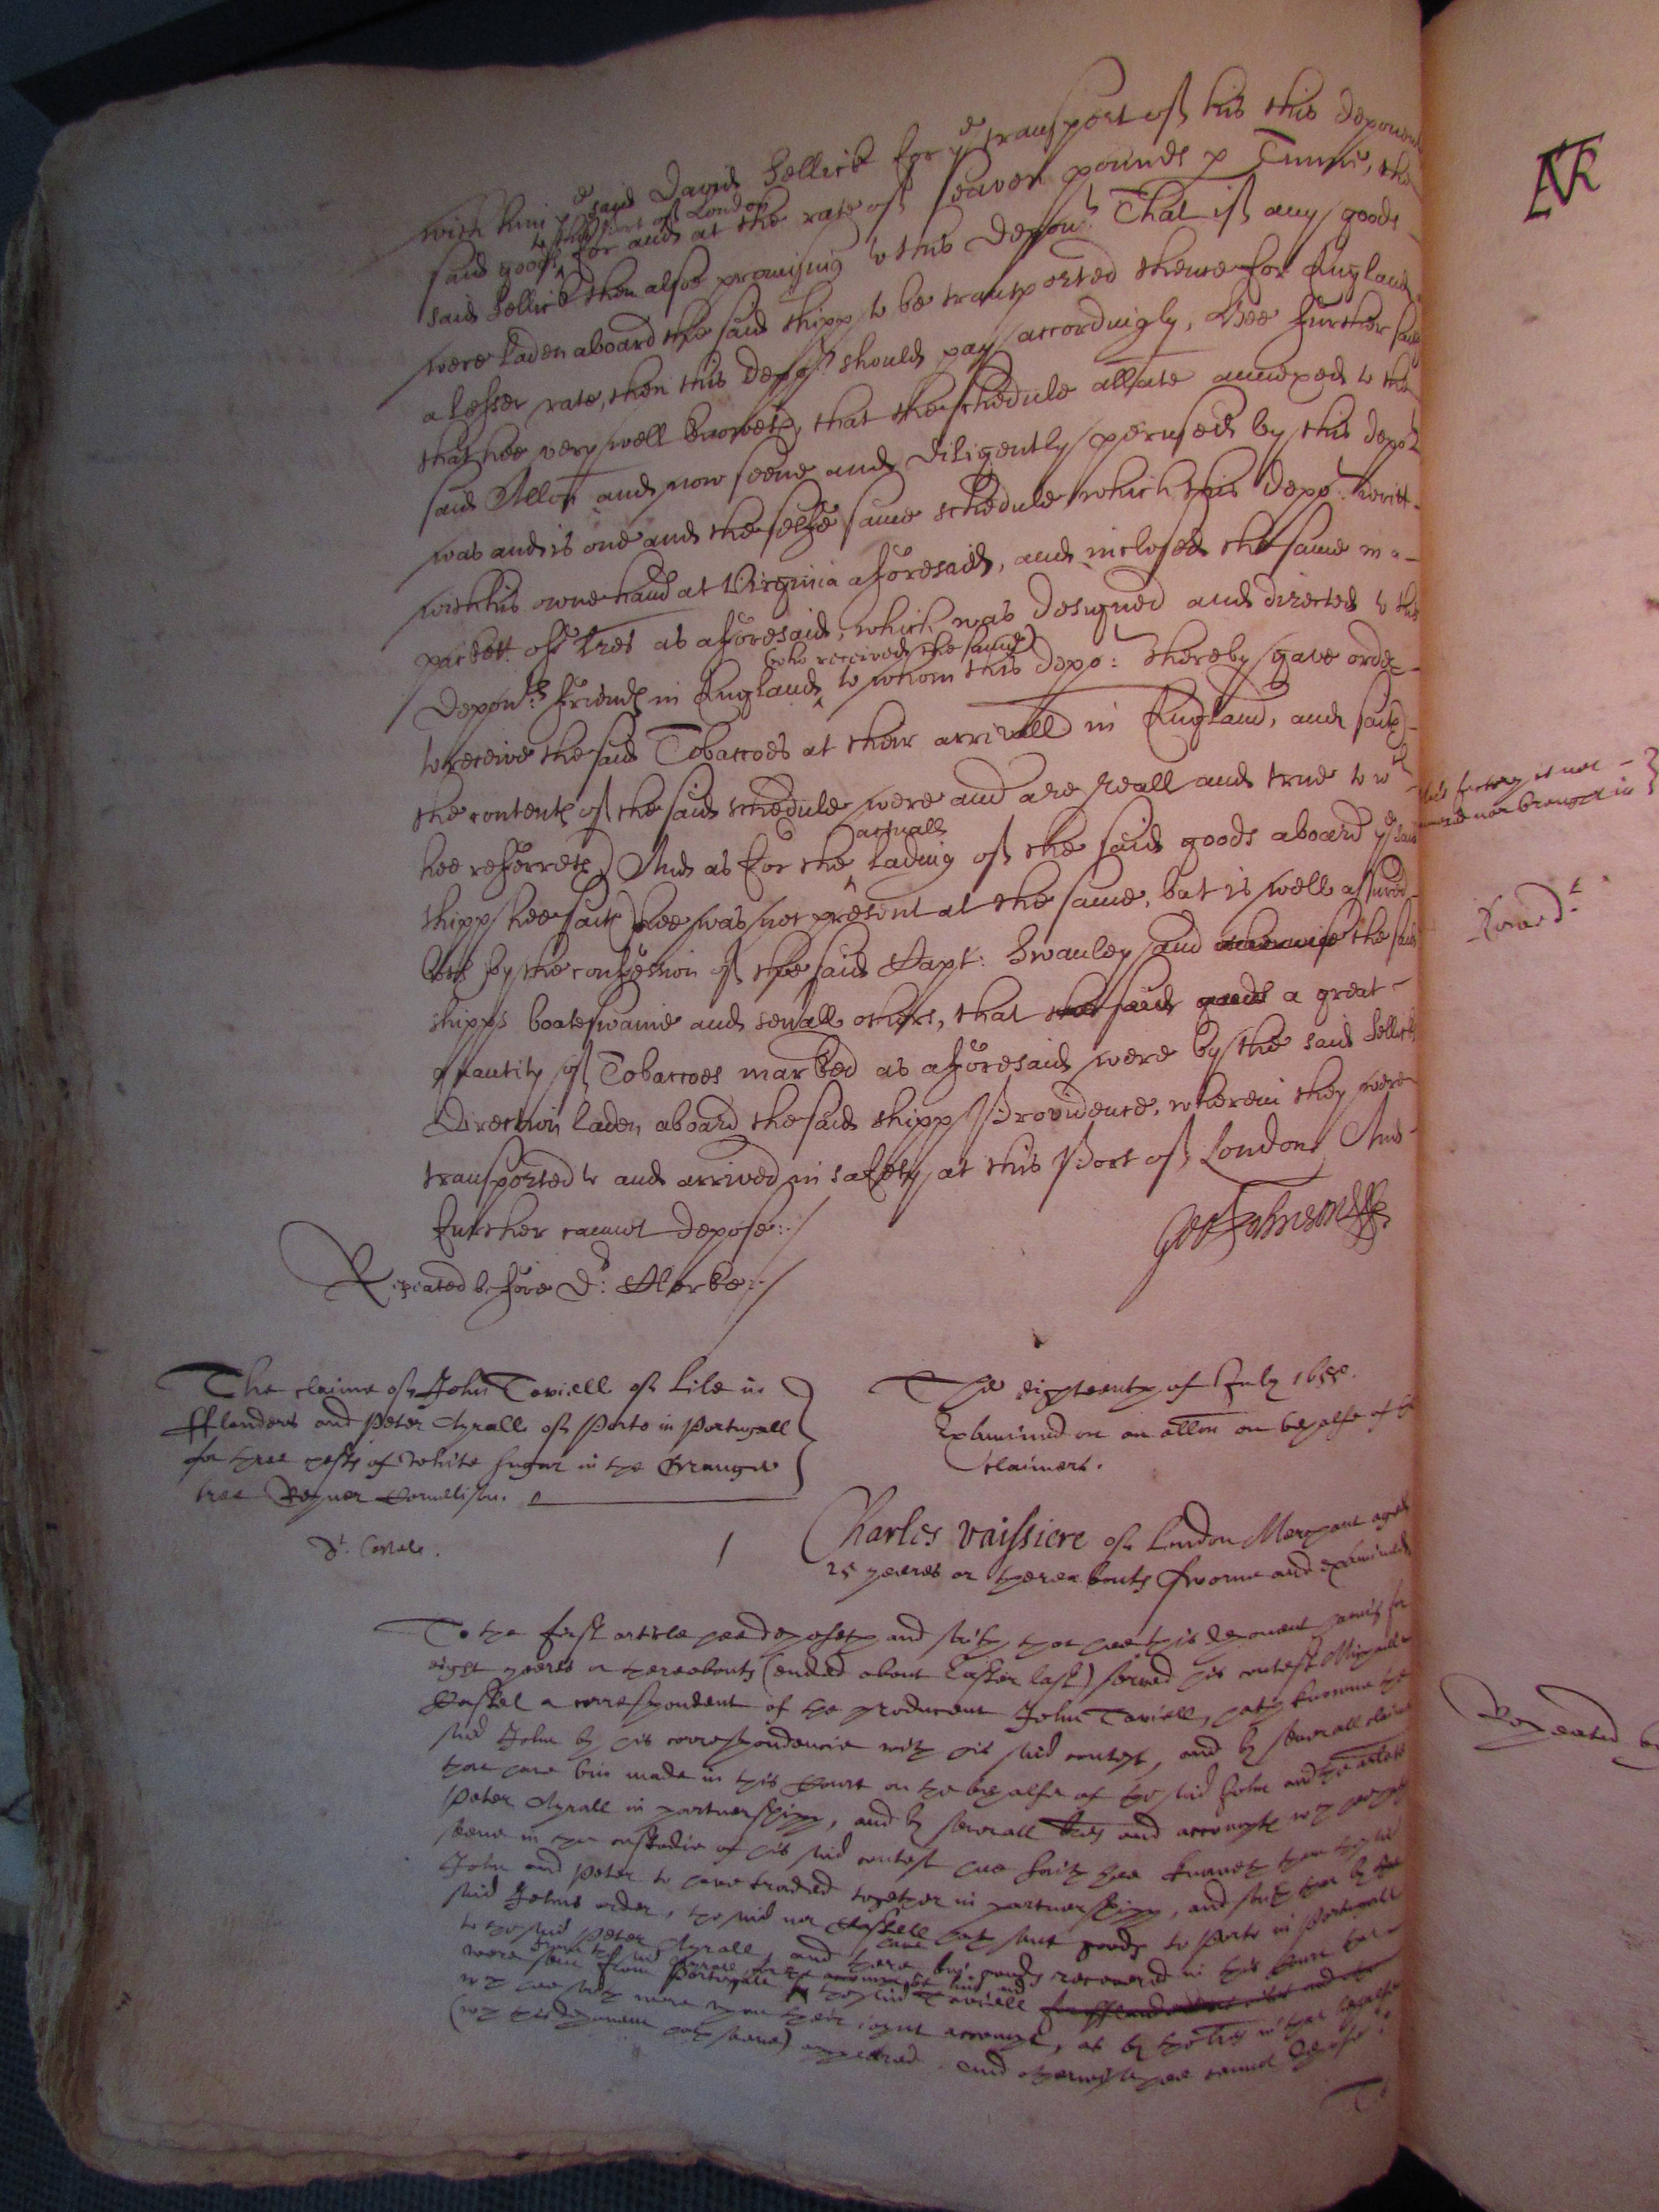 with him y^e said David Sellick for y^e transport of his this deponent
to this Port of London
said goods for and at the rate of seaven pounds p Tunne, the
said Sellick then alsoe promising to this Depon^t That if any goods
were laden aboard the said shipp to be transported thence for England
a lesser rate, then this Depo^t should pay accordingly, Hee further saith
that hee very well knoweth, that the schedule allate annexed to the
said Allon and now seene and diligently perused by this depo^t
was and is one and the selfe same schedule which this Depo^t: writt
with his owne hand at Virginia aforesaid, and inclosed the same in a
packett of l[ette]res as aforesaid, which was designed and directed to this
(who received the same)
Depon^ts: friends in England, to whom this Depo: thereby gave order
to receive the said Tobaccoes at their arrivall in England, and saith
the contents of the said schedule were and are reall and true to w^ch
hee referreth) And as for the lading of the said goods aboard y^e said
actuall
shipp hee saith hee was not present at the same, but is well assured
both by the confession of the said Capt: Swanley and otherwise the said
shipps boateswaine and severall others, that the said goods a great
quantity of Tobaccoes marked as aforesaid were by the said Sellicks
direction laden aboard the said shipp Providence, wherein they were
transported to and arrived in safety at this Port of London, And
further cannot depose:/
Geo Johnson
Repeated before D^r: Clerke:/
The claime of John Taviell of Lile in
fflanders and Peter Tyrall of Porto in Portugall
for three chests of white sugar in the Orange
tree Reyner Cornelison.
D^r. Castile.
The eighteenth of July 1655.
Examined on an allon on behalfe of the
Claimers.
1
Charles Vaissiere of London Merchant aged
25 yeeres or thereabouts sworne and examined
To the first article hee deposeth and saith that hee this deponent having for
eight yeeres or thereabouts (ended about Easter last) served his contest
Castel a correspondent of the producent John Taviell, hath knowne the
said John by his correspondencie with his said contest, and by severall claimes
that have bin made in this Court on the behalfe of the said John and the arlate
Peter Tyrall in partnershipp, and by severall l[ette]res and accompts w^ch hee hath
seene in the custodie of his said contest hee saith hee knoweth them the said
John and Peter to have traded together in partnershipp, and saith that by the
said Johns order, the said m^r Castell hath sent goods to Porto in Portugall
to the said Peter Tyrall, and there have bin goods recovered in this Court that
were sent from Portugall to the said Taviell
w^ch hee saith were upon their joynt accompt, as by the l[ette]res in that behalfe
(w^ch this deponent hath seene) appeared. And otherwise hee cannot depose.
To
Repeated